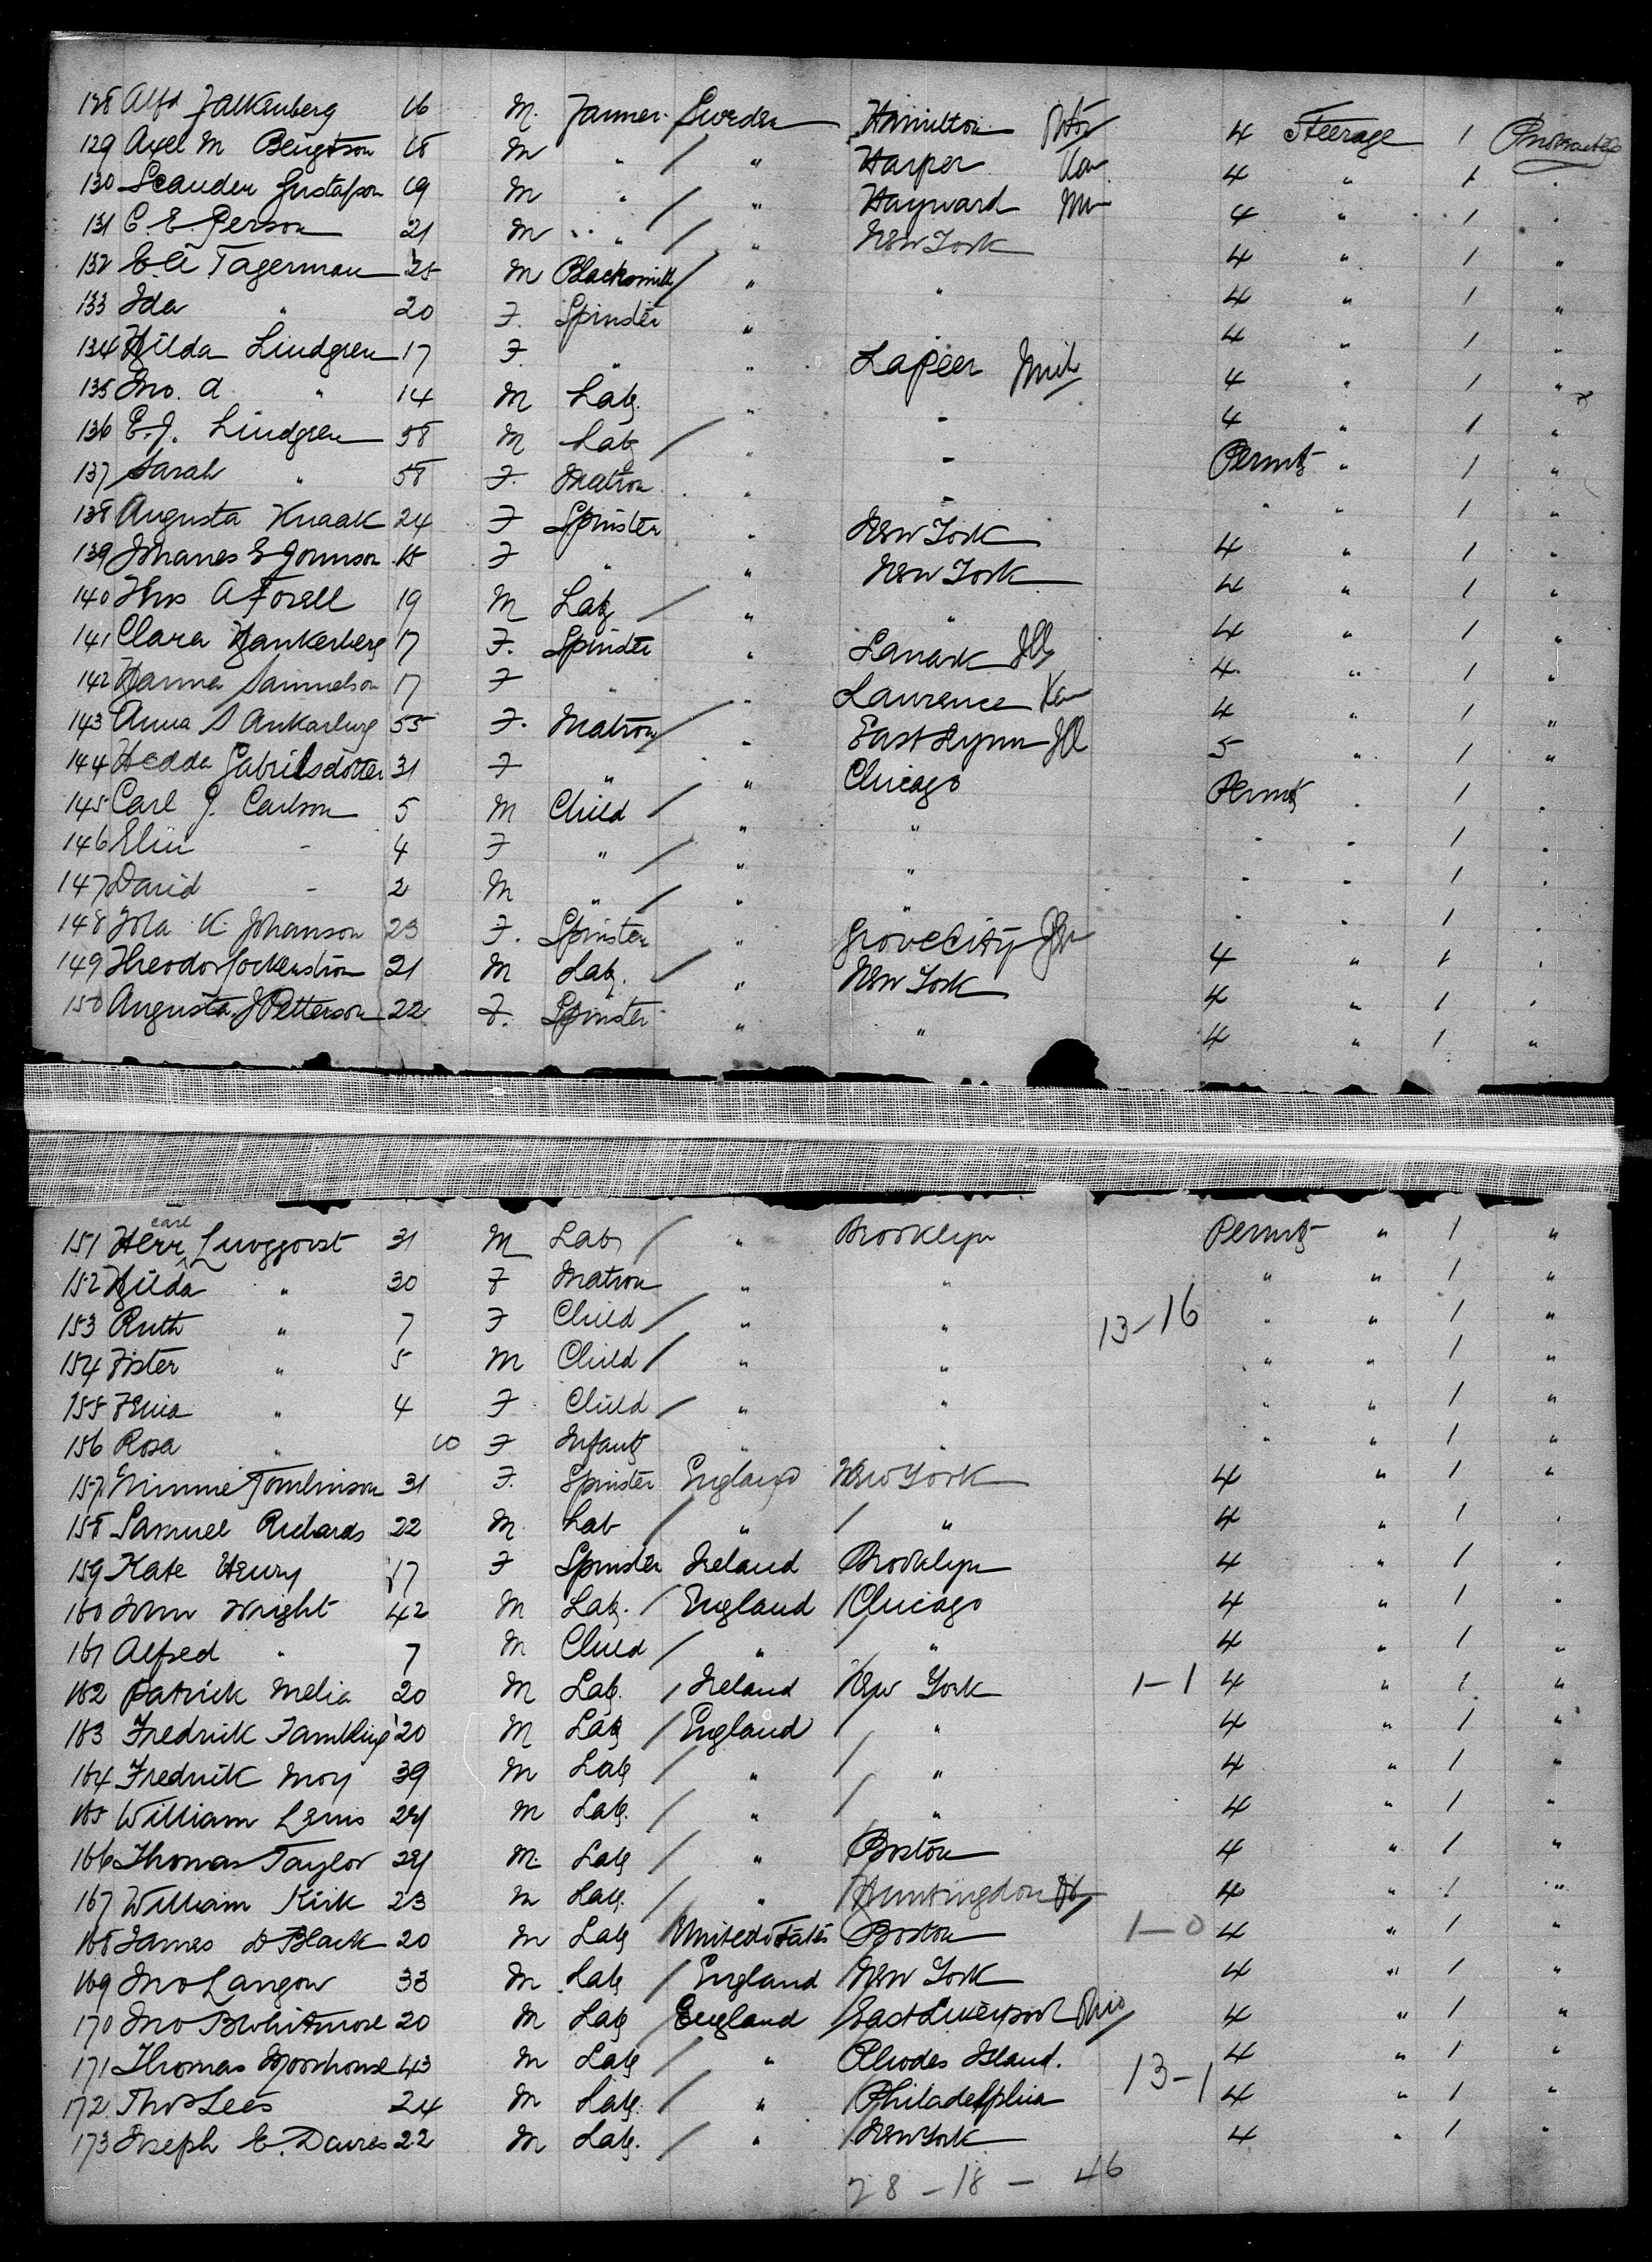 128 Alfd Falkenberg 16 M. Farmer Sweden Hamilton 4 Steerage 1
129 Axel M Bengtson 18 M " / " Harper Kan 4 " 1 "
130 Leander Gustafson 19 M " / " Hayward Min 4 " 1 "
131 C E Person 21 M " / " New York 4 " 1 "
132 E A Tagerman 25 M Blacksmith / " " 4 " 1 "
133 Ida " 20 F. Spinster " " 4 " 1 "
134 Hilda Lindgren 17 F " " Lapeer Mich 4 " 1 "
135 Jno. A " 14 M Lab. " " 4 " 1 "
136 E. J. Lindgren 58 M Lab / " " Permt " 1 "
137 Sarah " 58 F. Matron " " " " 1 "
138 Augusta Knaak 24 F Spinster " New York 4 " 1 "
139 Johanes E Jonnson 18 F " " New York 4 " 1 "
140 Thos A Forell 19 M Lab / " " 4 " 1 "
141 Clara Hankerberg 17 F. Spinster " Lanark Ill 4 " 1 "
142 Hanna Samuelson 17 F " " Lawrence Kan 4 " 1 "
143 Anna S Ankarberg 55 F. Matron / " East Lynn Ill 5 " 1 "
144 Hedda Gabrilsdotter 31 F " " Chicago Permt " 1 "
145 Carl J. Carlson 5 M Child / " " " " 1 "
146 Elin " 4 F " / " " " " 1 "
147 David " 2 M " / " " " " 1 "
148 K. Johanson 23 F. Spinster " Grove City 4 " 1 "
149 Theodor 21 M Lab. / " New York 4 " 1 "
150 Augusta J Petterson 22 F. Spinster " " 4 " 1 "
carl
151 Herr ^ Lungqvist 31 M Lab / " Brooklyn Permt " 1 "
152 Hilda " 30 F Matron " " " " 1 "
153 Ruth " 7 F Child / " " 13-16 " " 1 "
154 Fister " 5 M Child / " " " " 1 "
155 Fenia " 4 F. Child / " " " " 1 "
156 Rosa " 10 F Infant " " " " 1 "
157 Minnie Tomlinson 31 F. Spinster England New York 4 " 1 "
158 Samuel Richards 22 M. Lab / " / " 4 " 1 "
159 Kate Henry 17 F Spinster Ireland Brooklyn 4 " 1 "
160 John Wright 42 M Lab. / England / Chicago 4 " 1 "
161 Alfred " 7 M Child / " " 4 " 1 "
162 Patrick Melia 20 M Lab. / Ireland / New York 1-1 4 " 1 "
163 Fredrick Tambling 20 M Lab / England / " 4 " 1 "
164 Fredrik Moy 39 M Lab / " / " 4 " 1 "
165 William Lewis 24 M Lab. / " / " 4 " 1 "
166 Thomas Taylor 24 M. Lab / " / Boston 4 " 1 "
167 William Kirk 23 M Lab. / " / Huntingdon 4 " 1 "
168 James D Black 20 M Lab United States Boston 1-0 4 " 1 "
169 Jno Langow 33 M Lab / England / New York 4 " 1 "
170 Jno B Whitmore 20 M Lab / England / East Liverpool Ohio 4 " 1 "
171 Thomas Moorhouse 43 M Lab / " Rhodes Island. 4 " 1 "
172 Thos Lees 24 M Lab. / " / Philadelphia 13-1 4 " 1 "
173 Joseph E. Davies 22 M Lab. / " / New York 4 " 1 "
28 - 18 - 46